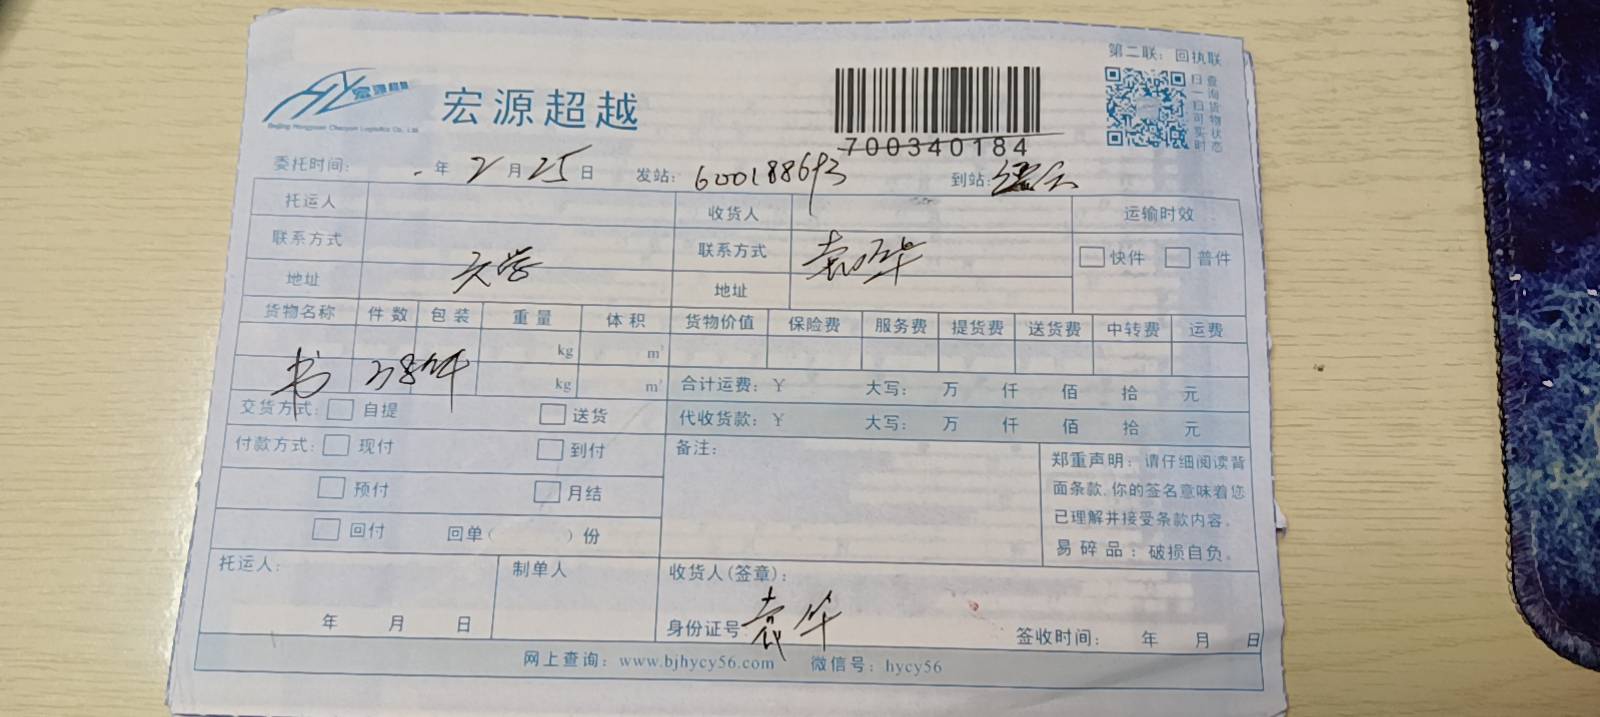 第二联：回执联
宏源超越
Beijing Hongyuan Chaoyue Logistics Co., Ltd.
宏源超越
700340184
扫一扫可实时
查询货物状态
委托时间： 年 2 月 25 日 发站： 600188693 到站：
托运人 收货人 运输时效
联系方式 联系方式 袁华 快件 普件
地址 地址
货物名称 件数 包装 重量 体积 货物价值 保险费 服务费 提货费 送货费 中转费 运费
kg m³
书 38件 kg m³ 合计运费：￥ 大写： 万 仟 佰 拾 元
交货方式： 自提 送货 代收货款：￥ 大写： 万 仟 佰 拾 元
付款方式： 现付 到付 备注：
预付 月结
回付 回单（ ）份
郑重声明：请仔细阅读背
面条款，你的签名意味着您
已理解并接受条款内容。
易碎品：破损自负。
托运人： 制单人 收货人（签章）：
年 月 日 身份证号 袁华 签收时间： 年 月 日
网上查询：www.bjhycy56.com 微信号：hycy56